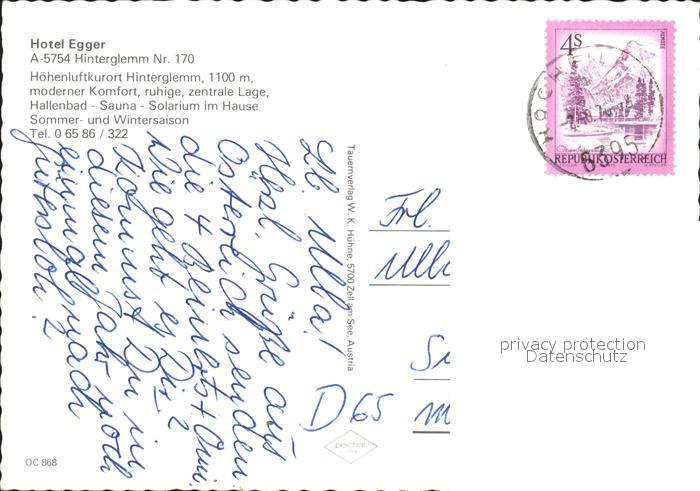 Hotel Egger
A-5754 Hinterglemm Nr. 170
Höhenluftkurort Hinterglemm, 1100 m,
moderner Komfort, ruhige, zentrale Lage,
Hallenbad - Sauna - Solarium im Hause
Sommer- und Wintersaison
Tel. 0 65 86 / 322
Lb. Ulla!
Hzsl. Grüße aus
Österreich senden
die 4 +
Wie geht es Dir?
Kommst Du in
diesem Jahr noch
einmal nach
Gütersloh?
Tauernverlag W. K. Hühne, 5700 Zell am See, Austria
4S
REPUBLIK ÖSTERREICH
HOCHFILZEN
6395
Frl.
Ull
D 65
privacy protection
Datenschutz
pechar
OC 868